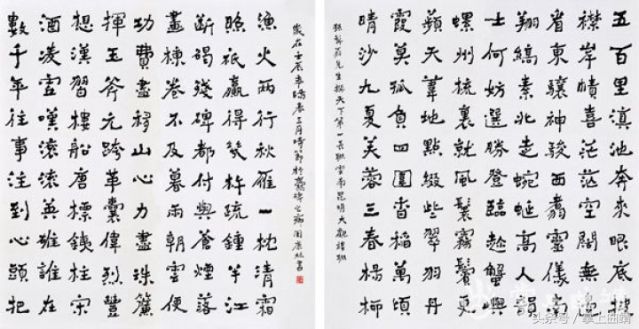 五百里滇池奔來眼底披
襟岸幘喜茫茫空闊無邊
看東驤神駿西翥靈儀南
翔縞素北走蜿蜒高人韻
士何妨選勝登臨趁蟹嶼
螺州梳裹就風鬟霧鬢更
蘋天葦地點綴些翠羽丹
霞莫孤負四圍香稻萬頃
晴沙九夏芙蓉三春楊柳
先生撰天下第一長聯雲南昆明大觀樓聯
數千年往事注到心頭把
酒凌虛嘆滾滾英雄誰在
想漢習樓船唐標鐵柱宋
揮玉斧元跨革囊偉烈豐
功費盡移山心力盡珠簾
畫棟卷不及暮雨朝雲便
斷碣殘碑都付與蒼煙落
照祗贏得幾杵疏鐘半江
漁火兩行秋雁一枕清霜
歲在壬辰
头条号/掌上曲靖